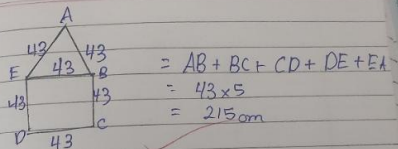 A
43 43
E 43 B
43 43
D 43 C
= AB + BC + CD + DE + EA
= 43 × 5
= 215 cm